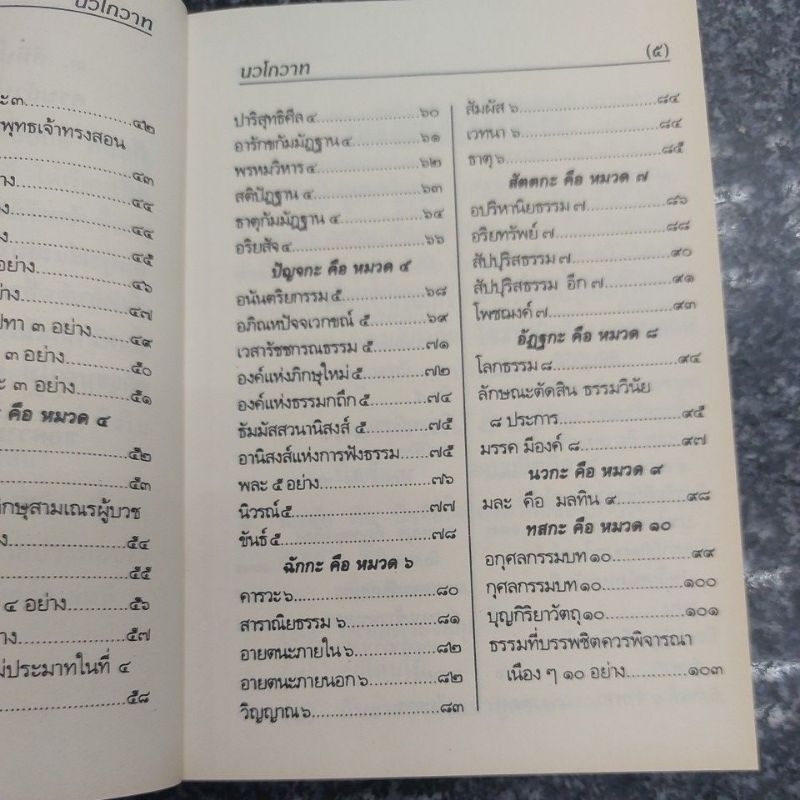 นวโกวาท
ะ ๓............๔๒
พุทธเจ้าทรงสอน
............๔๓
าง............๔๔
อง............๔๔
อง............๔๕
อย่าง............๔๖
ย่าง............๔๗
ปทา ๓ อย่าง............๔๙
๓ อย่าง............๕๐
ะ ๓ อย่าง............๕๑
คือ หมวด ๔
............๕๒
............๕๓
ภิกษุสามเณรผู้บวช
าง............๕๔
............๕๕
๔ อย่าง............๕๖
าง............๕๗
ม่ประมาทในที่ ๔
............๕๘
นวโกวาท
(๕)
ปาริสุทธิศีล ๔............๖๐
อารักขกัมมัฏฐาน ๔............๖๑
พรหมวิหาร ๔............๖๒
สติปัฏฐาน ๔............๖๓
ธาตุกัมมัฏฐาน ๔............๖๔
อริยสัจ ๔............๖๖
ปัญจกะ คือ หมวด ๕
อนันตริยกรรม ๕............๖๘
อภิณหปัจจเวกขณ์ ๕............๖๙
เวสารัชชกรณธรรม ๕............๗๑
องค์แห่งภิกษุใหม่ ๕............๗๒
องค์แห่งธรรมกถึก ๕............๗๔
ธัมมัสสวนานิสงส์ ๕............๗๕
อานิสงส์แห่งการฟังธรรม............๗๕
พละ ๕ อย่าง............๗๖
นิวรณ์ ๕............๗๗
ขันธ์ ๕............๗๘
ฉักกะ คือ หมวด ๖
คารวะ ๖............๘๐
สาราณิยธรรม ๖............๘๑
อายตนะภายใน ๖............๘๒
อายตนะภายนอก ๖............๘๒
วิญญาณ ๖............๘๓
สัมผัส ๖............๘๔
เวทนา ๖............๘๔
ธาตุ ๖............๘๕
สัตตกะ คือ หมวด ๗
อปริหานิยธรรม ๗............๘๖
อริยทรัพย์ ๗............๘๘
สัปปุริสธรรม ๗............๙๐
สัปปุริสธรรม อีก ๗............๙๑
โพชฌงค์ ๗............๙๓
อัฏฐกะ คือ หมวด ๘
โลกธรรม ๘............๙๔
ลักษณะตัดสิน ธรรมวินัย
๘ ประการ............๙๕
มรรค มีองค์ ๘............๙๗
นวกะ คือ หมวด ๙
มละ คือ มลทิน ๙............๙๘
ทสกะ คือ หมวด ๑๐
อกุศลกรรมบท ๑๐............๙๙
กุศลกรรมบท ๑๐............๑๐๐
บุญกิริยาวัตถุ ๑๐............๑๐๑
ธรรมที่บรรพชิตควรพิจารณา
เนือง ๆ ๑๐ อย่าง............๑๐๓